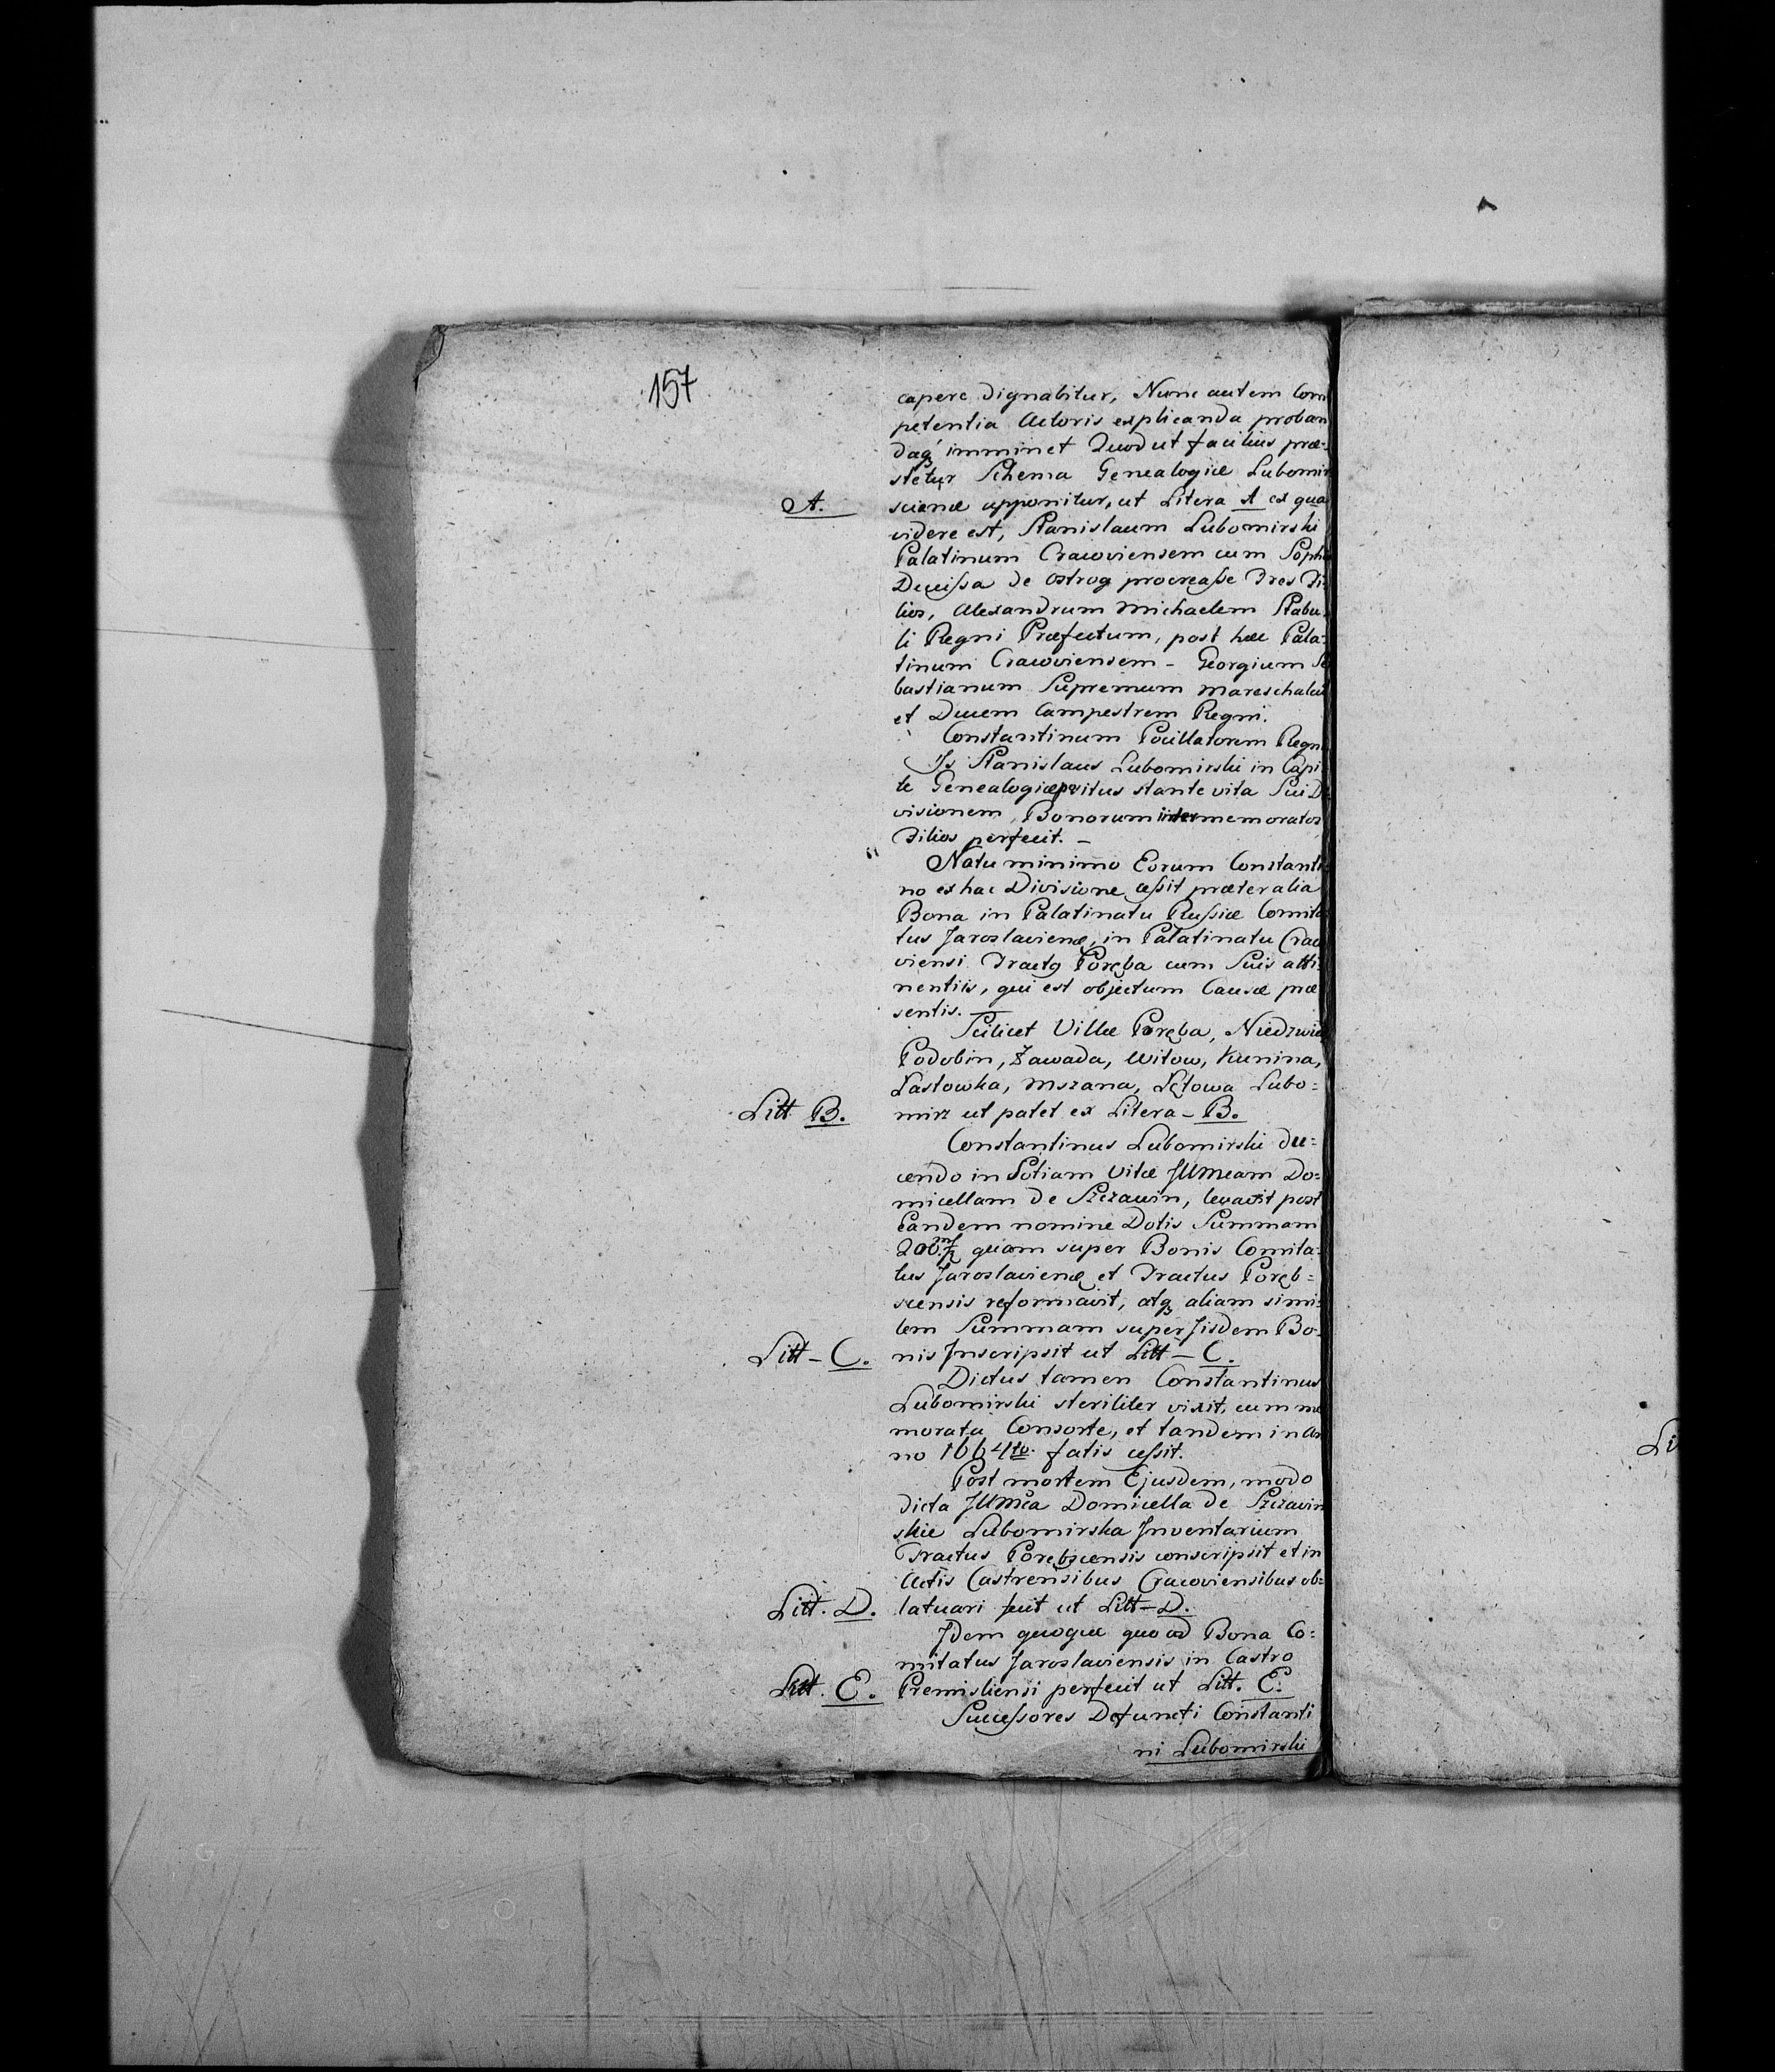 157
capere dignabitur, Nunc autem Com
petentia Actoris explicanda proban
daq imminet Quod ut facilius præ=
stetur Schema Genealogiæ Lubomir
A.
scianæ apponitur, ut Litera A ex qua
videre est, Stanislaum Lubomirski
Palatinum Cracoviensem cum Soph
Ducissa de Ostrog procreasse Tres Fi
lios, Alexandrum Michaelem Stabu
li Regni Præfectum, post hæc Pala=
tinum Cracoviensem - Georgium Se
bastianum Supremum Mareschalcu
et Ducem Campestrem Regni.
Constantinum Pocillatorem Regn
Is Stanislaus Lubomirski in Capi
te Genealogiæ stante vita Sui D
visionem Bonorum inter memoratos
Filios perfecit. -
Natu minimo Eorum Constanti
no ex hac Divisione cessit præter alia
Bona in Palatinatu Russiæ Comita
tus Jaroslaviens, in Palatinatu Crac
viensi Tractq Poręba cum Suis atti=
nentiis, qui est objectum Causæ præ
sentis. -
Scilicet Villæ Poręba, Niedzwie
Podobin, Zawada, Witow, Kunina,
Lastowka, Mszana, Lętowa Lubo=
Litt B.
mirz ut patet ex Litera - B.
Constantinus Lubomirski du=
cendo in Sotiam Vitæ Illmeam Do=
micellam de Szczawin, levavit post
Eandem nomine Dotis Summam
200 quam super Bonis Comita=
tus Jaroslaviens et Tractus Poręb=
scensis reformavit, atq aliam simi=
lem Summam super Iisdem Bo=
Litt - C.
nis Inscripsit ut Litt - C.
Dictus tamen Constantinus
Lubomirski steriliter vixit, cum me
morata Consorte, et tandem in An
no 1664to. fatis cessit.
Post mortem Ejusdem, modo
dicta Illmea Domicella de Szczawin
skie Lubomirska Inventarium
Tractus Porębscensis conscripsit et in
Actis Castrensibus Cracoviensibus ob=
Litt. D.
latuari fecit ut Litt - D.
Idem quoque quo ad Bona Co=
mitatus Jaroslaviensis in Castro
Litt. E.
Premisliensi perfecit ut Litt. E.
Successores Defuncti Constanti
ni Lubomirski
Li